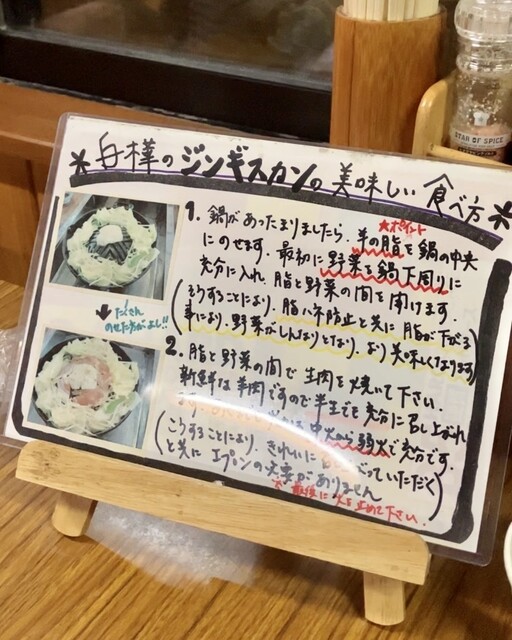 ＊白樺のジンギスカンの美味しい食べ方＊
1. 鍋があったまりましたら、羊の脂を鍋の中央
★ポイント
にのせます。最初に野菜を鍋下周りに
充分に入れ、脂と野菜の間を開けます。
(そうすることにより、脂ハネ防止と共に脂が下がる
事により、野菜がしんなりとなり、より美味しくなります)
↓たくさん
のせた方がよし!!
2. 脂と野菜の間で生肉を焼いて下さい。
新鮮な羊肉ですので半生でも充分に召し上がれ
ます。
中火から弱火で充分です。
(こうすることにより、きれいに
っていただく
と共にエプロンの必要がありません
※最後に火を止めて下さい。
STAR OF SPICE